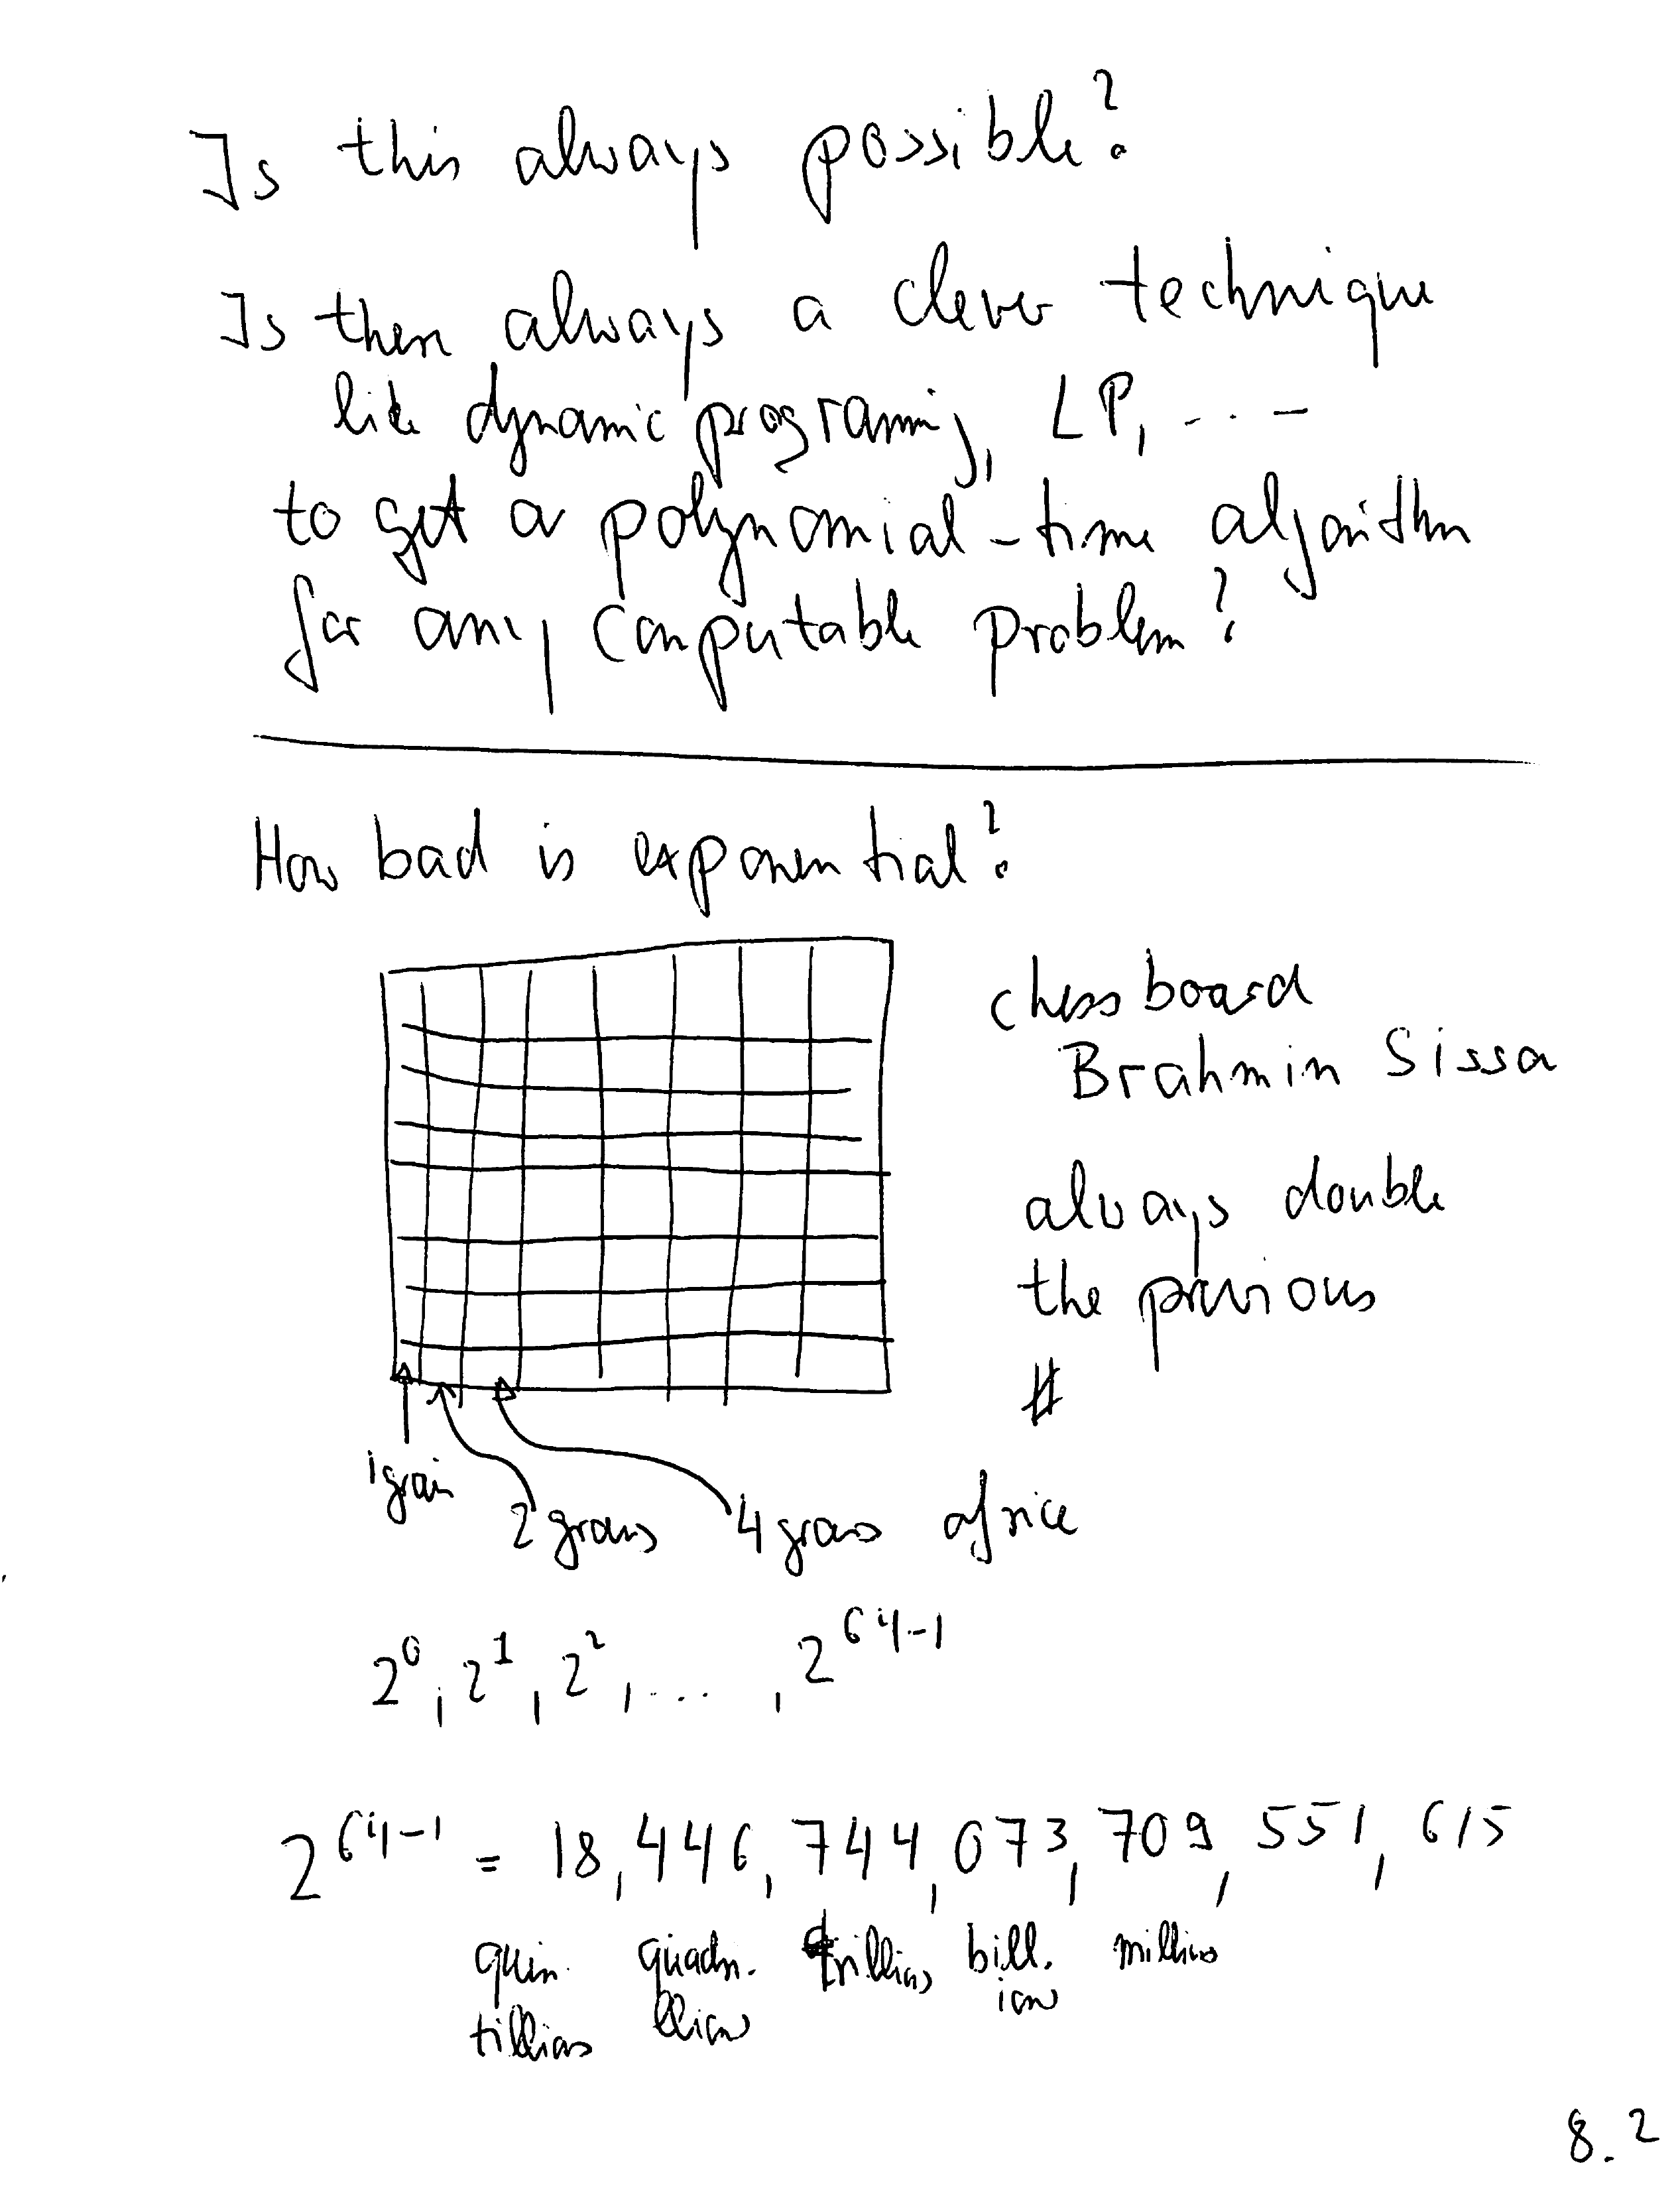 Is this always possible?
Is there always a clever technique
like dynamic programing, LP, ...-
to get a polynomial-time algorithm
for any computable problem?
How bad is exponential?
chess board
Brahmin Sissa
always double
the previous
#
1 grain
2 grains 4 grains of rice
2^0, 2^1, 2^2, ...., 2^64-1
2^64-1 = 18,446,744,073,709,551,615
quin quadri- trillions bill. millions
tillions llions ions
8.2